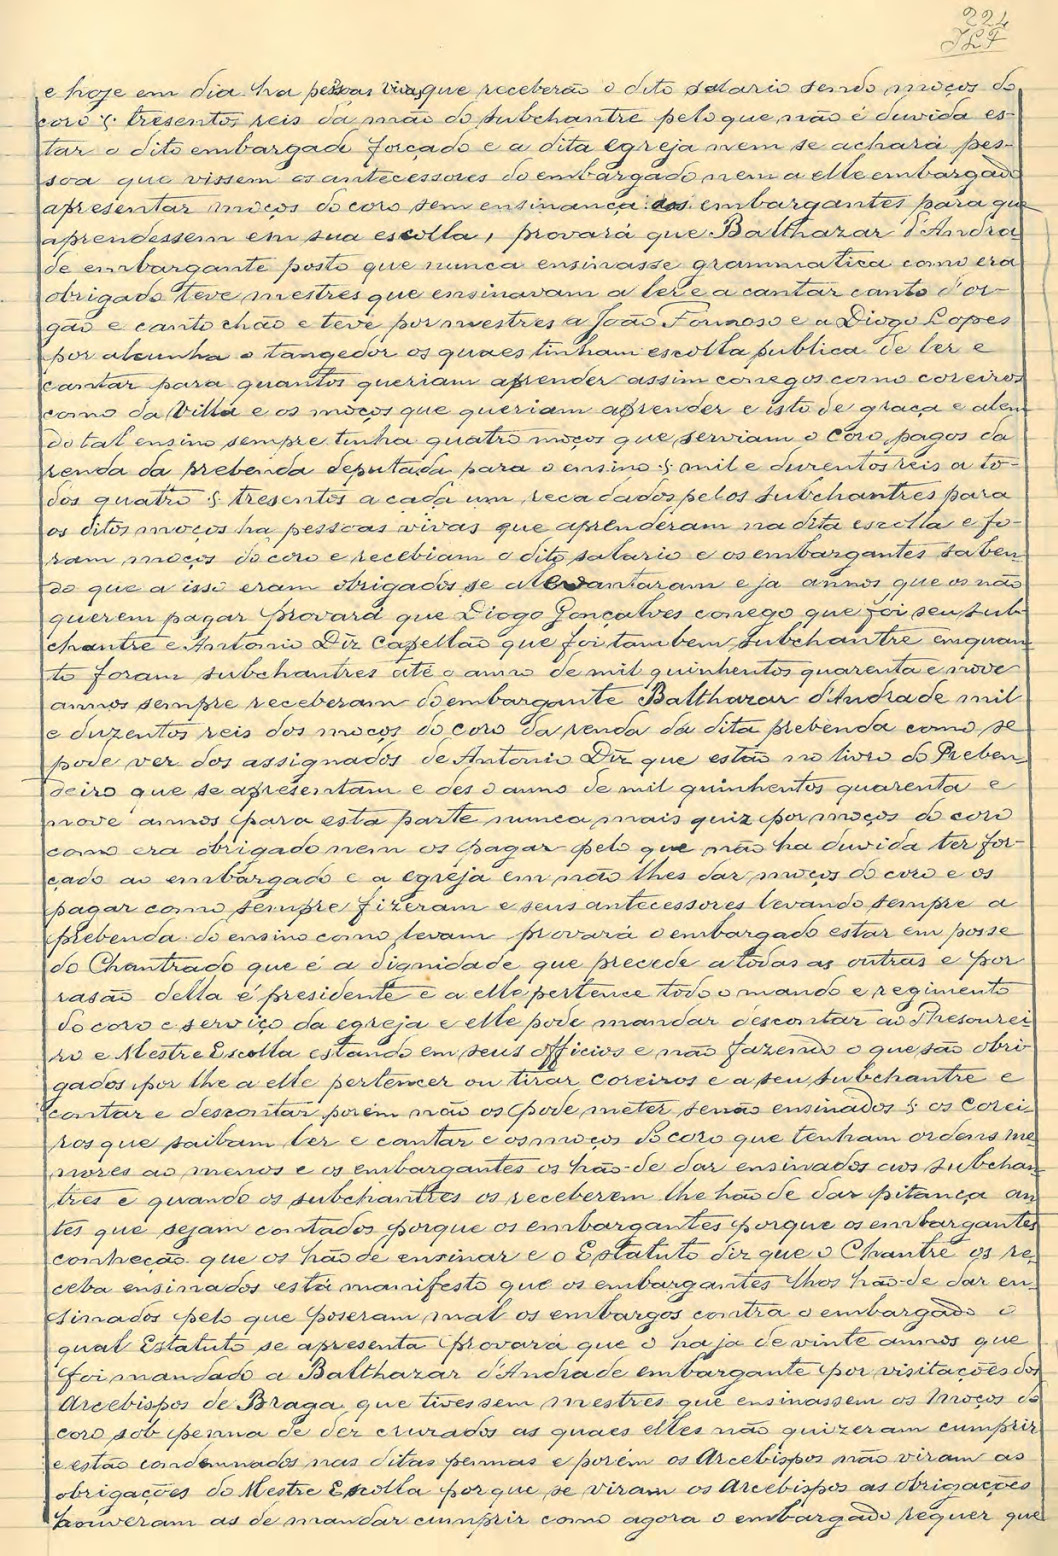 224
e hoje em dia ha pessoas vivas, que receberão o dito salario sendo moços do
coro § tresentos reis da mão do subchantre pelo que não é duvida es-
tar o dito embargado forçado e a dita egreja nem se achará pes-
soa que vissem os antecessores do embargado nem a elle embargado
apresentar moços do coro sem ensinança dos embargantes para que
aprendessem em sua escolla, provará que Balthazar d'Andra-
de embargante posto que nunca ensinasse grammatica como era
obrigado teve mestres que ensinavam a ler e a cantar canto d'or-
gão e canto chão e teve por mestres a João Formoso e a Diogo Lopes
por alcunha o tangedor os quaes tinham escolla publica de ler e
cantar para quantos queriam aprender assim conegos como coreiros
como da Villa e os moços que queriam aprender e isto de graça e alem
do tal ensino sempre tinha quatro moços que serviam o coro, pagos da
renda da prebenda deputada para o ensino § mil e durentos reis a to-
dos quatro § tresentos a cada um, recadados pelos subchantres para
os ditos moços ha pessoas vivas que aprenderam na dita escolla e fo-
ram moços do coro e recebiam o dito salario e os embargantes saben-
do que a isso eram obrigados se alevantaram e ja annos que os não
querem pagar Provará que Diogo Gonçalves conego que foi seu sub-
chantre e Antonio Diz Capellão que foi tambem subchantre emquan-
to foram subchantres até o anno de mil quinhentos quarenta e nove
annos sempre receberam do embargante Balthazar d'Andrade mil
e duzentos reis dos moços do coro da renda da dita prebenda como se
pode ver dos assignados de Antonio Diz que estão no livro do Preben
deiro que se apresentam e des o anno de mil quinhentos quarenta e
nove annos para esta parte nunca mais quiz por moços do coro
como era obrigado nem os pagar pelo que não ha duvida ter for-
çado ao embargado e a egreja em não lhes dar moços do coro e os
pagar como sempre fizeram e seus antecessores levando sempre a
prebenda do ensino como levam provará o embargado estar em posse
do Chantrado que é a dignidade que precede a todas as outras e por
rasão della é presidente e a elle pertence todo o mando e regimento
do coro e serviço da egreja e elle pode mandar descontar ao Thesourei
ro e Mestre Escolla estando em seus officios e não fazendo o que são obri
gados por lhe a elle pertencer ou tirar coreiros e a seu subchantre e
contar e descontar porém não os pode meter senão ensinados § os corei-
ros que saibam ler e cantar e os moços do coro que tenham ordens me-
nores ao menos e os embargantes os hão-de dar ensinados aos subchan-
tres e quando os subchantres os receberem lhe hão de dar pitança an
tes que sejam contados porque os embargantes porque os embargantes
conheção que os hão de ensinar e o Estatuto diz que o Chantre os re-
ceba ensinados está manifesto que os embargantes lhos hão-de dar en-
sinados pelo que poseram mal os embargos contra o embargado o
qual Estatuto se apresenta Provará que o haja de vinte annos que
foi mandado a Balthazar d'Andrade embargante por visitações dos
Arcebispos de Braga que tivessem mestres que ensinassem os moços do
coro sob penna de dez cruzados as quaes elles não quizeram cumprir
e estão condemnados nas ditas pennas e porém os Arcebispos não viram as
obrigações do Mestre Escolla porque se viram os Arcebispos as obrigações
houveram as de mandar cumprir como agora o embargado requer que